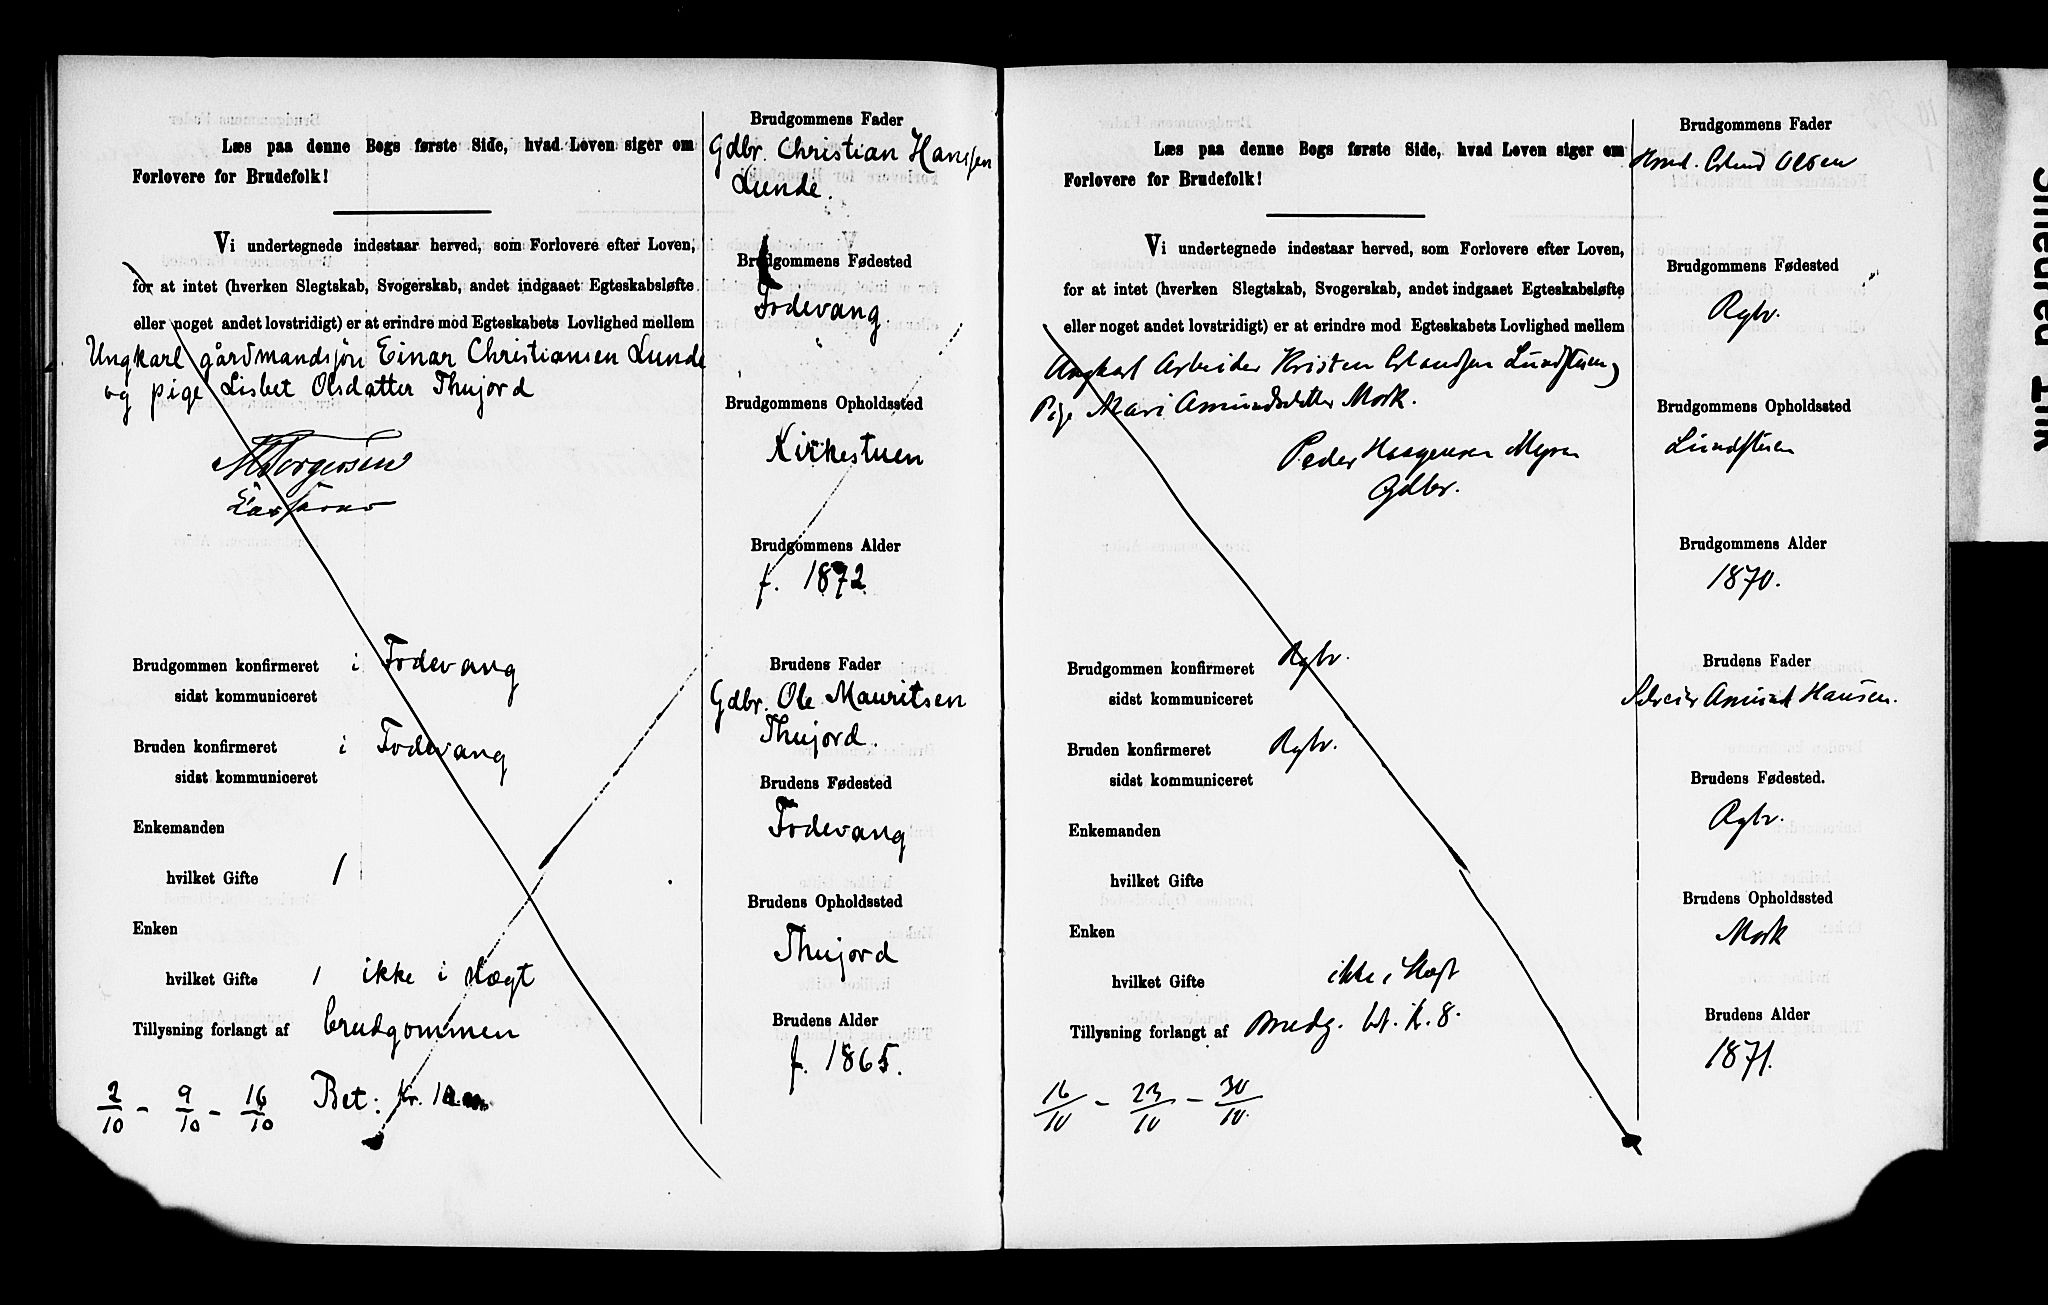 Læs paa denne Bogs første Side, hvad Loven siger om
Forlovere for Brudefolk!
Vi undertegnede indestaar herved, som Forlovere efter Loven,
for at intet (hverken Slegtskab, Svogerskab, andet indgaaet Egteskabsløfte
eller noget andet lovstridigt) er at erindre mod Egteskabets Lovlighed mellem
Ungkarl gårdmandsjön Einar Christiansen Lunde
og pige Lisbet Olsdatter Thujord
Brudgommen konfirmeret i Fodevang
sidst kommuniceret
Bruden konfirmeret i Fodevang
sidst kommuniceret
Enkemanden
hvilket Gifte 1
Enken
hvilket Gifte 1 ikke i slægt
Tillysning forlangt af brudgommen
2/10 - 9/10 - 16/10 Bet: kr.
Brudgommens Fader
Gdbr. Christian Hanssen
Lunde.
Brudgommens Fødested
Fodevang.
Brudgommens Opholdssted
Kirkestuen
Brudgommens Alder
f. 1872
Brudens Fader
Gdbr. Ole Mauritsen
Thujord.
Brudens Fødested
Fodevang
Brudens Opholdssted
Thujord
Brudens Alder
f. 1865.
Læs paa denne Bogs første Side, hvad Loven siger om
Forlovere for Brudefolk!
Vi undertegnede indestaar herved, som Forlovere efter Loven,
for at intet (hverken Slegtskab, Svogerskab, andet indgaaet Egteskabsløfte
eller noget andet lovstridigt) er at erindre mod Egteskabets Lovlighed mellem
Ungkarl Arbeider Kristen Erlandsen Lundstuen,
Pige Mari Amundsdatter Mork.
Peder Haagensen Myren
Gdbr.
Brudgommen konfirmeret Rgbr.
sidst kommuniceret
Bruden konfirmeret Rgbr.
sidst kommuniceret
Enkemanden
hvilket Gifte
Enken
hvilket Gifte ikke i Slægt
Tillysning forlangt af Brudg. bt. k. 8.
16/10 - 23/10 - 30/10.
Brudgommens Fader
Erland Olsen
Brudgommens Fødested
Rgbr.
Brudgommens Opholdssted
Lundstuen
Brudgommens Alder
1870.
Brudens Fader
Amund Hansen.
Brudens Fødested.
Rgbr.
Brudens Opholdssted
Mork
Brudens Alder
1871.